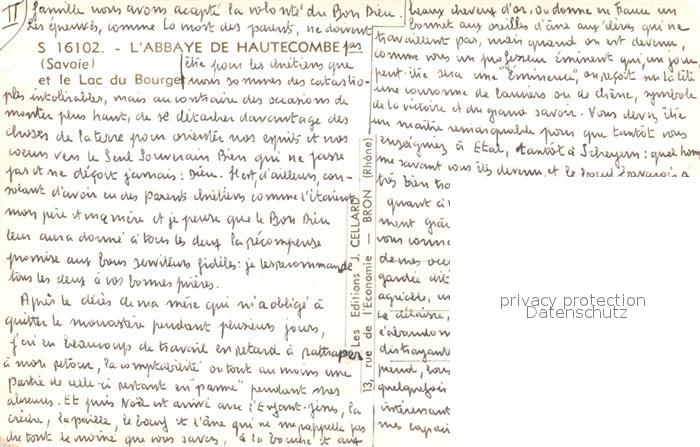 II famille nous avons accepté la volonté du Bon Dieu.
Les épreuves, comme la mort des parents, ne doivent
S 16102. - L'ABBAYE DE HAUTECOMBE pas
(Savoie) être pour les chrétiens que
et le Lac du Bourget nous sommes des catastro-
phes intolérables, mais au contraire des occasions de
monter plus haut, de se détacher davantage des
choses de la terre pour orienter nos esprits et nos
coeurs vers le Seul Souverain Bien qui ne passe
pas et ne déçoit jamais : Dieu. Il est, d'ailleurs, con-
solant d'avoir eu des parents chrétiens comme l'étaient
mon père et ma mère et je pense que le Bon Dieu
leur aura donné à tous les deux la récompense
promise aux bons serviteurs fidèles : je les recommande
tous les deux à vos bonnes prières.
Après le décès de ma mère qui m'a obligé à
quitter le monastère pendant plusieurs jours,
j'ai eu beaucoup de travail en retard à rattraper
à mon retour, la comptabilité ou tout au moins une
partie de celle-ci restant en "panne" pendant mes
absences. Et puis Noël est arrivé avec l'Enfant-Jésus, la
crèche, la paille, le boeuf et l'âne qui ne m'rappelle pas
du tout le moine que vous savez, à la bouche et aux
Les Editions J. CELLARD
13, rue de l'Economie — BRON (Rhône)
beaux cheveux d'or. On donne en France un
bonnet aux oreilles d'âne aux élèves qui ne
travaillent pas, mais quand on est devenu,
comme vous un professeur éminent qui, un jour,
peut-être sera une "Éminence", on reçoit sur la tête
une couronne de lauriers ou de chêne, symbole
de la victoire et du grand savoir. Vous devez être
un maître remarquable pour que tantôt vous
enseigniez à Etal, tantôt à Scheyern : quel hom
me savant vous êtes devenu, et le
très bien
quant à
ment
vous
de mes
gardée
agréable, un
Le délaisse,
s'abandon
distrayant
prend, lors
quelquefois
intéressant
mes
privacy protection
Datenschutz